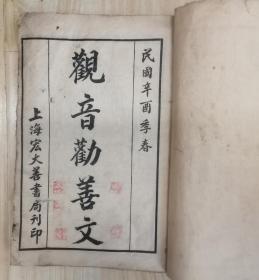 民國辛酉季春
觀音勸善文
上海宏大善書局刊印